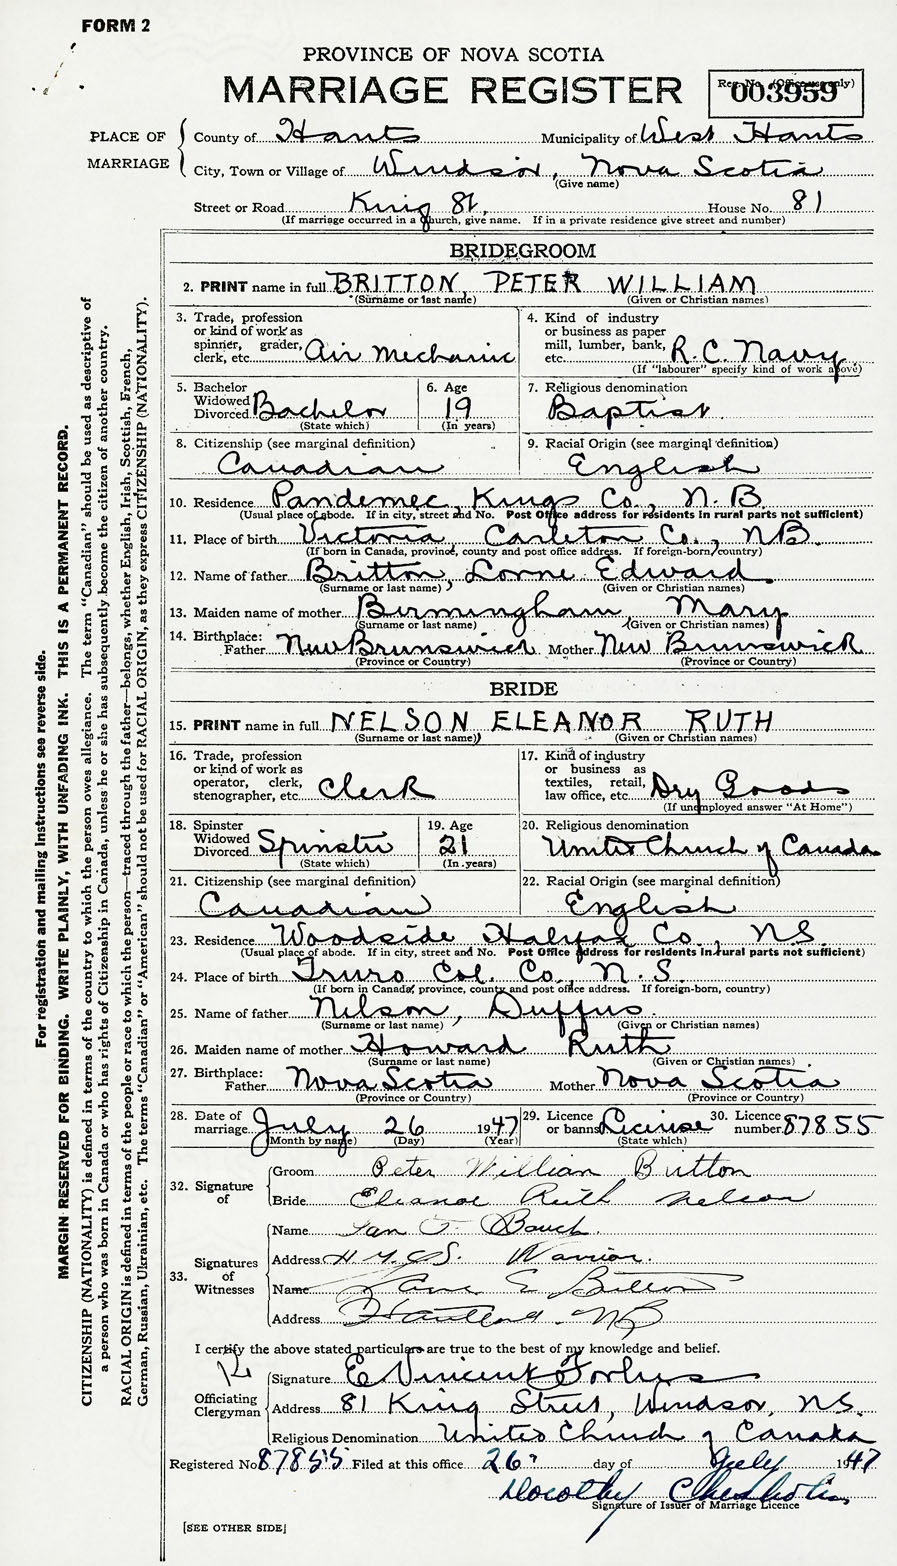 FORM 2
PROVINCE OF NOVA SCOTIA
MARRIAGE REGISTER
Reg. No. (Office use only)
003959
PLACE OF MARRIAGE
County of Hants Municipality of West Hants
City, Town or Village of Windsor, Nova Scotia
(Give name)
Street or Road King St. House No. 81
(If marriage occurred in a church, give name. If in a private residence give street and number)
BRIDEGROOM
2. PRINT name in full BRITTON, PETER WILLIAM
(Surname or last name) (Given or Christian names)
3. Trade, profession or kind of work as spinner, grader, clerk, etc. Air Mechanic
4. Kind of industry or business as paper mill, lumber, bank, etc. R.C. Navy
(If "labourer" specify kind of work above)
5. Bachelor Widowed Divorced Bachelor
(State which)
6. Age 19
(In years)
7. Religious denomination Baptist
8. Citizenship (see marginal definition) Canadian
9. Racial Origin (see marginal definition) English
10. Residence Pandemec, Kings Co., N.B
(Usual place of abode. If in city, street and No. Post Office address for residents in rural parts not sufficient)
11. Place of birth Victoria, Carleton Co., N.B.
(If born in Canada, province, county and post office address. If foreign-born, country)
12. Name of father Britton, Lorne Edward
(Surname or last name) (Given or Christian names)
13. Maiden name of mother Birmingham Mary
(Surname or last name) (Given or Christian names)
14. Birthplace: Father New Brunswick Mother New Brunswick
(Province or Country) (Province or Country)
BRIDE
15. PRINT name in full NELSON ELEANOR RUTH
(Surname or last name) (Given or Christian names)
16. Trade, profession or kind of work as operator, clerk, stenographer, etc. Clerk
17. Kind of industry or business as textiles, retail, law office, etc. Dry Goods
(If unemployed answer "At Home")
18. Spinster Widowed Divorced Spinster
(State which)
19. Age 21
(In years)
20. Religious denomination United Church of Canada
21. Citizenship (see marginal definition) Canadian
22. Racial Origin (see marginal definition) English
23. Residence Woodside Halifax Co., N.S.
(Usual place of abode. If in city, street and No. Post Office address for residents in rural parts not sufficient)
24. Place of birth Truro Col. Co., N.S.
(If born in Canada, province, county and post office address. If foreign-born, country)
25. Name of father Nelson, Duffus
(Surname or last name) (Given or Christian names)
26. Maiden name of mother Howard Ruth
(Surname or last name) (Given or Christian names)
27. Birthplace: Father Nova Scotia Mother Nova Scotia
(Province or Country) (Province or Country)
28. Date of marriage July 26 1947
(Month by name) (Day) (Year)
29. Licence or banns License
(State which)
30. Licence number 87855
32. Signature of
Groom Peter William Britton
Bride Eleanor Ruth Nelson
33. Signatures of Witnesses
Name Ian
Address H.M.C.S. Warrior.
Name E Britton
Address Hartland. NB
I certify the above stated particulars are true to the best of my knowledge and belief.
Officiating Clergyman
Signature E Vincent Forbes
Address 81 King Street, Windsor, N.S.
Religious Denomination United Church of Canada
Registered No 87855 Filed at this office 26 day of July 1947
Dorothy
Signature of Issuer of Marriage Licence
[SEE OTHER SIDE]
For registration and mailing instructions see reverse side.
MARGIN RESERVED FOR BINDING. WRITE PLAINLY, WITH UNFADING INK. THIS IS A PERMANENT RECORD.
CITIZENSHIP (NATIONALITY) is defined in terms of the country to which the person owes allegiance. The term "Canadian" should be used as descriptive of
a person who was born in Canada or who has rights of Citizenship in Canada, unless he or she has subsequently become the citizen of another country.
RACIAL ORIGIN is defined in terms of the people or race to which the person—traced through the father—belongs, whether English, Irish, Scottish, French,
German, Russian, Ukrainian, etc. The terms "Canadian" or "American" should not be used for RACIAL ORIGIN, as they express CITIZENSHIP (NATIONALITY).